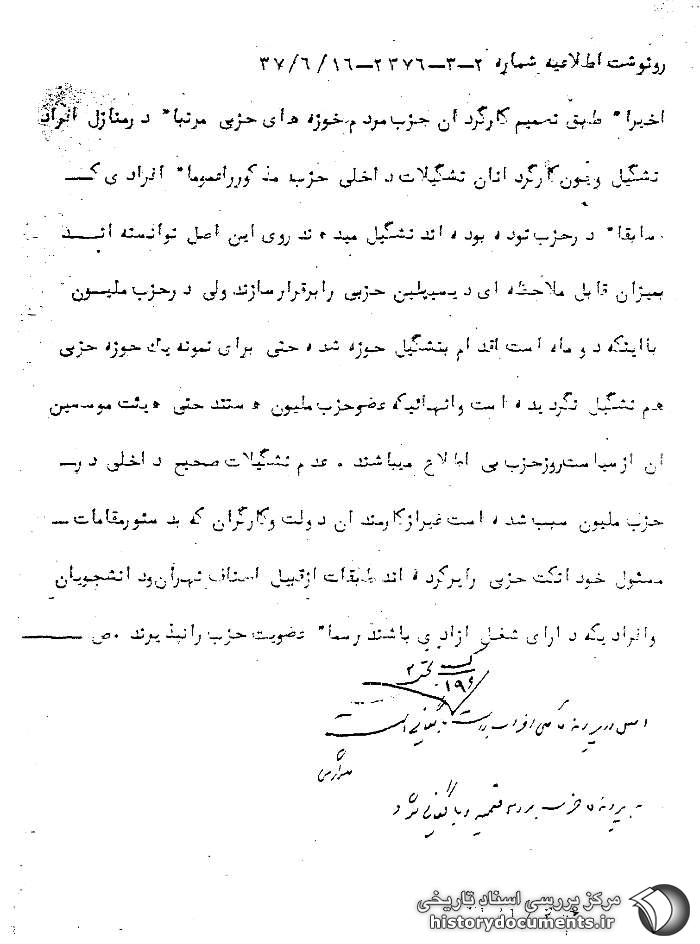 رونوشت اطلاعیه شماره ۲-۳-۲۳۷۶-۳۷/۶/۱۶
اخیرا" طبق تصمیم کارگردان حزب مردم خوزه های حزبی مرتبا" درمنازل افراد
تشکیل وچون کارگردانان تشکیلات داخلی حزب مذکورراعموما" افرادی کــه
سابقا" درحزب توده بوده اند تشکیل میدهند روی این اصل توانسته انــد
بمیزان قابل ملاحظه ای دیسیپلین حزبی رابرقرارسازند ولی درحزب ملیــون
بااینکه دوماه است اقدام بتشکیل حوزه شده حتی برای نمونه یک حوزه حزبی
هم تشکیل نگردیده است وانهائیکه عضوحزب ملیون هستند حتی هیئت موسسین
ان ازسیاست روزحزب بی اطلاع میباشند . عدم تشکیلات صحیح داخلی در
حزب ملیون سبب شده است غیرازکارمندان دولت وکارگران که بدستورمقامات
مسئول خود انکت حزبی راپرکرده اند طبقات ازقبیل اصناف تهران ودانشجویان
وافرادیکه دارای شغل ازادی باشند رسما" عضویت حزب رانپذیرند .ص
۱۹۶
اصل در پرونده احزاب بایگانی است
به پرونده حزب مردم ضمیمه و بایگانی شود
مرکز بررسی اسناد تاریخی
historydocuments.ir